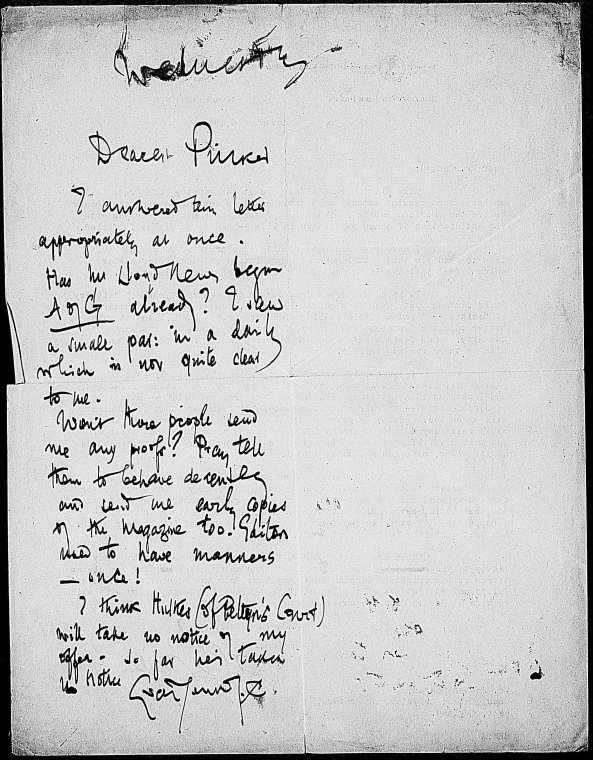 Wednesday.
Dearest Pinker
I answered their letter
appropriately at once.
Has the Lloyd News begun
A of G already? I saw
a small par: in a daily
which is not quite clear
to me.
Won't those people send
me any proofs? Pray tell
them to behave decently
and send me early copies
of the Magazine too! Editors
used to have manners
— once!
I think (of Court)
will take no notice of my
offer – so far he's taken
no notice
Ever Yours J.C.